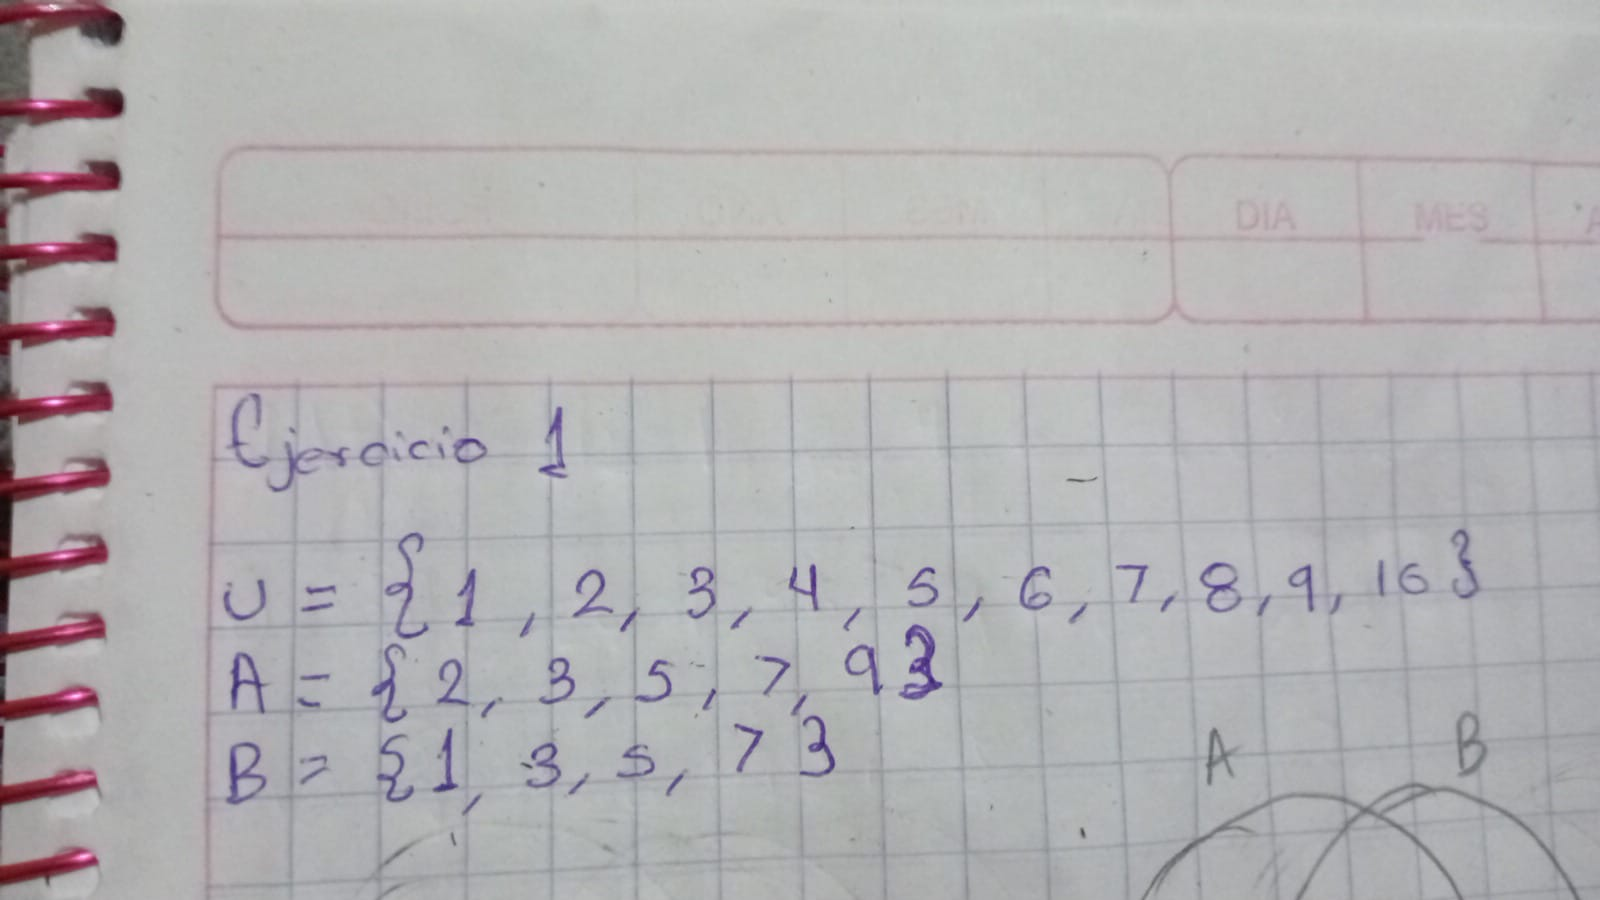 DIA MES A
Ejercicio 1
U = {1, 2, 3, 4, 5, 6, 7, 8, 9, 10}
A = {2, 3, 5, 7, 9}
B = {1, 3, 5, 7}
A B